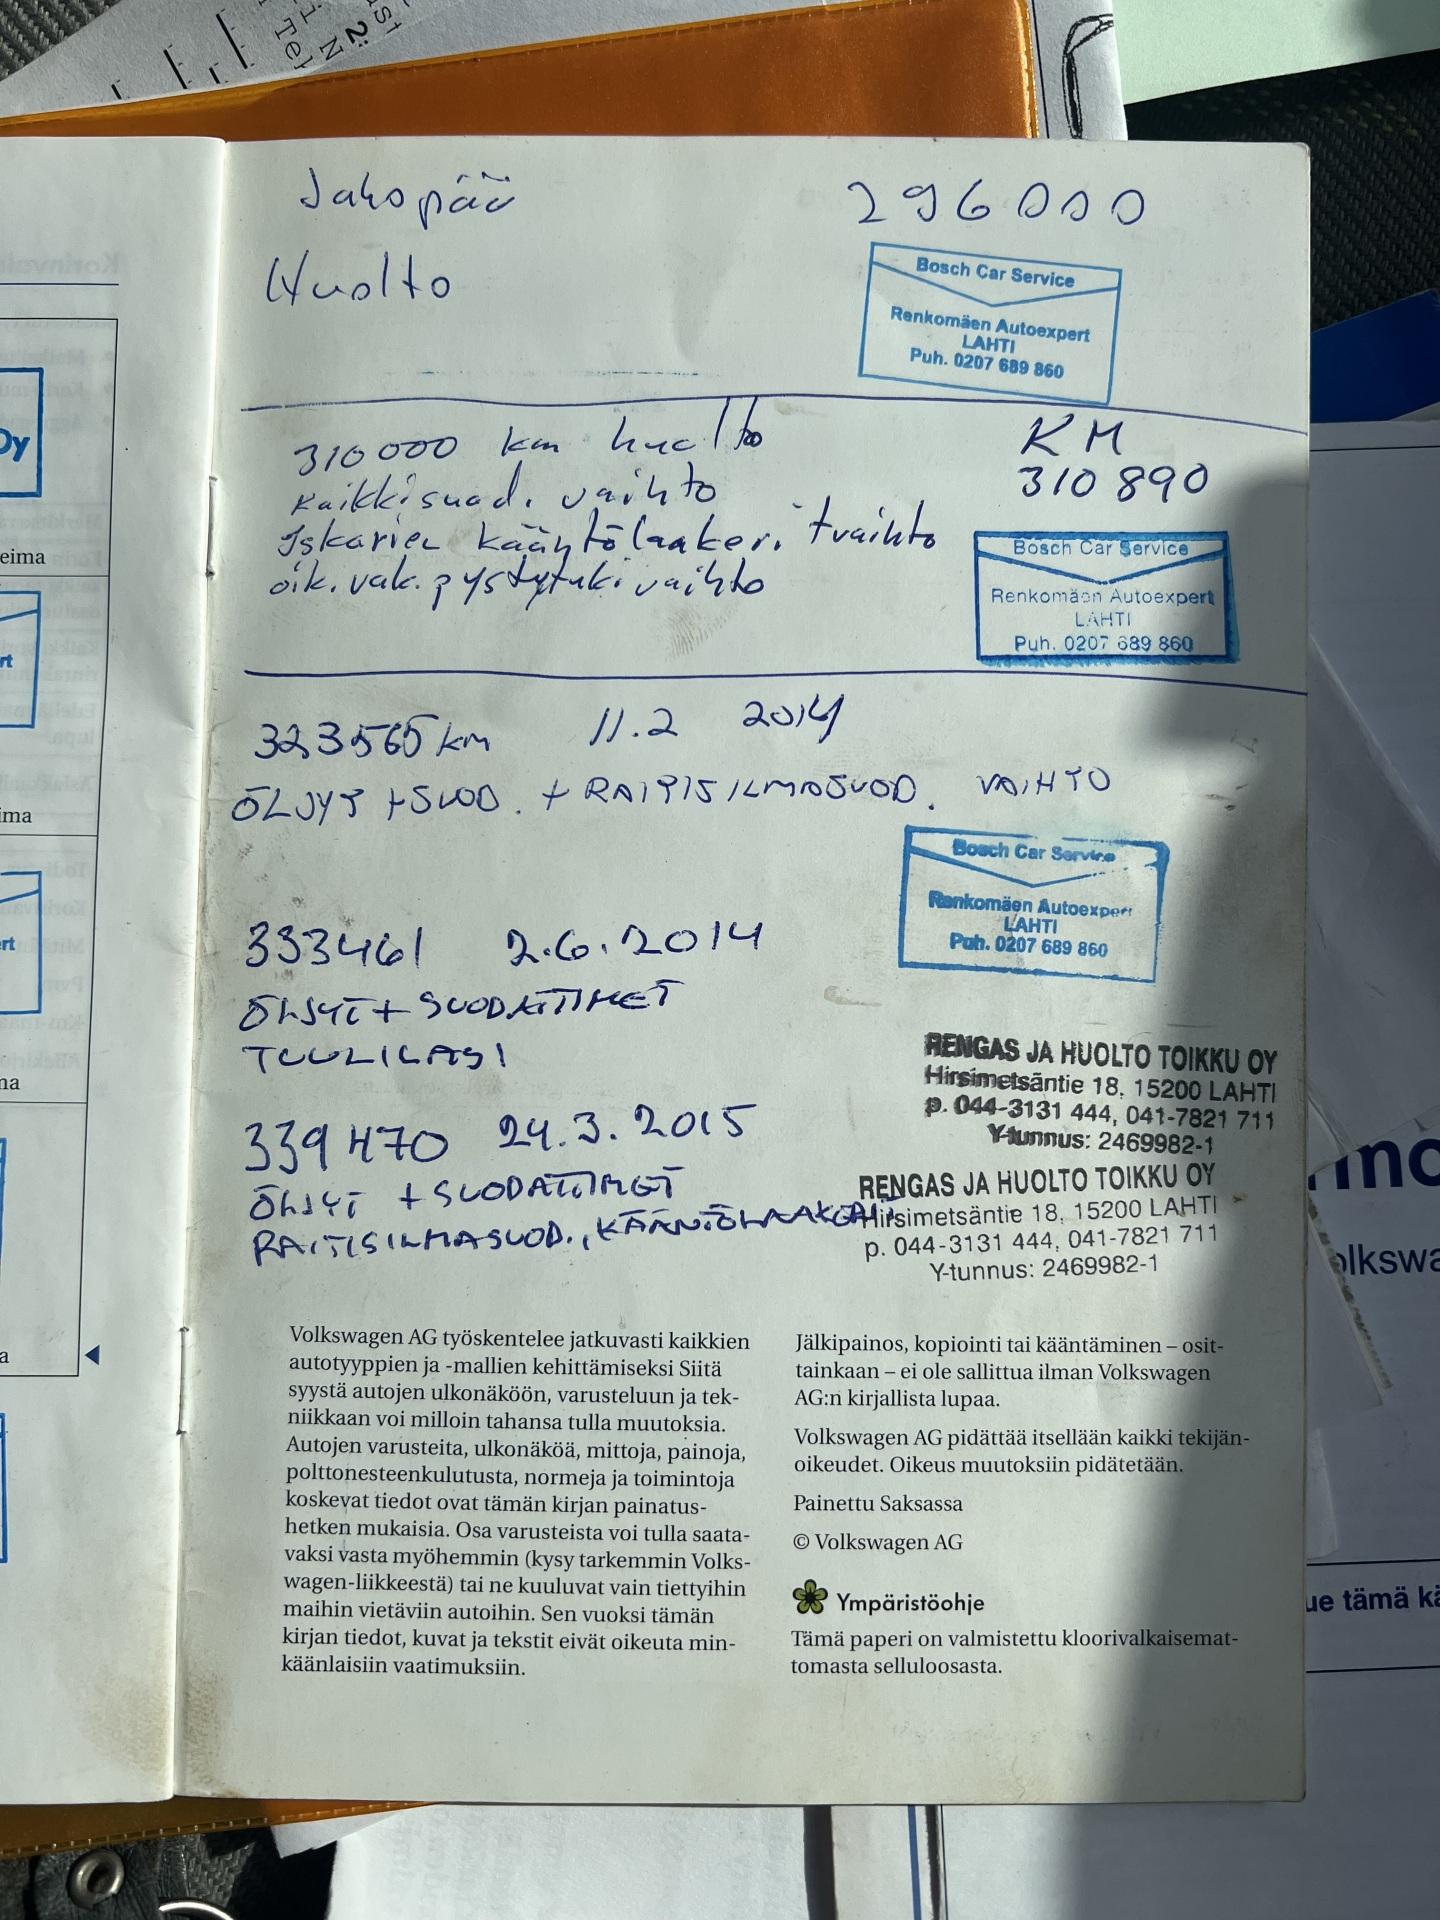 Jakopää
Huolto
296000
Bosch Car Service
Renkomäen Autoexpert
LAHTI
Puh. 0207 689 860
310000 km huolto
Kaikki suod. vaihto
Iskarien kääntölaakerit vaihto
oik. vak. pystytuki vaihto
KM
310 890
Bosch Car Service
Renkomäen Autoexpert
LAHTI
Puh. 0207 689 860
323565 km 11.2 2014
ÖLJYT + SUOD. + RAITISILMASUOD. VAIHTO
Bosch Car Service
Renkomäen Autoexpert
LAHTI
Puh. 0207 689 860
333461 2.6.2014
ÖLJYT + SUODATTIMET
TUULILASI
RENGAS JA HUOLTO TOIKKU OY
Hirsimetsäntie 18, 15200 LAHTI
p. 044-3131 444, 041-7821 711
Y-tunnus: 2469982-1
339470 24.3.2015
ÖLJYT + SUODATTIMET
RAITISILMASUOD., KÄÄNTÖLAAKERIT
RENGAS JA HUOLTO TOIKKU OY
Hirsimetsäntie 18, 15200 LAHTI
p. 044-3131 444, 041-7821 711
Y-tunnus: 2469982-1
Volkswagen AG työskentelee jatkuvasti kaikkien
autotyyppien ja -mallien kehittämiseksi Siitä
syystä autojen ulkonäköön, varusteluun ja tek-
niikkaan voi milloin tahansa tulla muutoksia.
Autojen varusteita, ulkonäköä, mittoja, painoja,
polttonesteenkulutusta, normeja ja toimintoja
koskevat tiedot ovat tämän kirjan painatus-
hetken mukaisia. Osa varusteista voi tulla saata-
vaksi vasta myöhemmin (kysy tarkemmin Volks-
wagen-liikkeestä) tai ne kuuluvat vain tiettyihin
maihin vietäviin autoihin. Sen vuoksi tämän
kirjan tiedot, kuvat ja tekstit eivät oikeuta min-
käänlaisiin vaatimuksiin.
Jälkipainos, kopiointi tai kääntäminen – osit-
tainkaan – ei ole sallittua ilman Volkswagen
AG:n kirjallista lupaa.
Volkswagen AG pidättää itsellään kaikki tekijän-
oikeudet. Oikeus muutoksiin pidätetään.
Painettu Saksassa
© Volkswagen AG
Ympäristöohje
Tämä paperi on valmistettu kloorivalkaisemat-
tomasta selluloosasta.